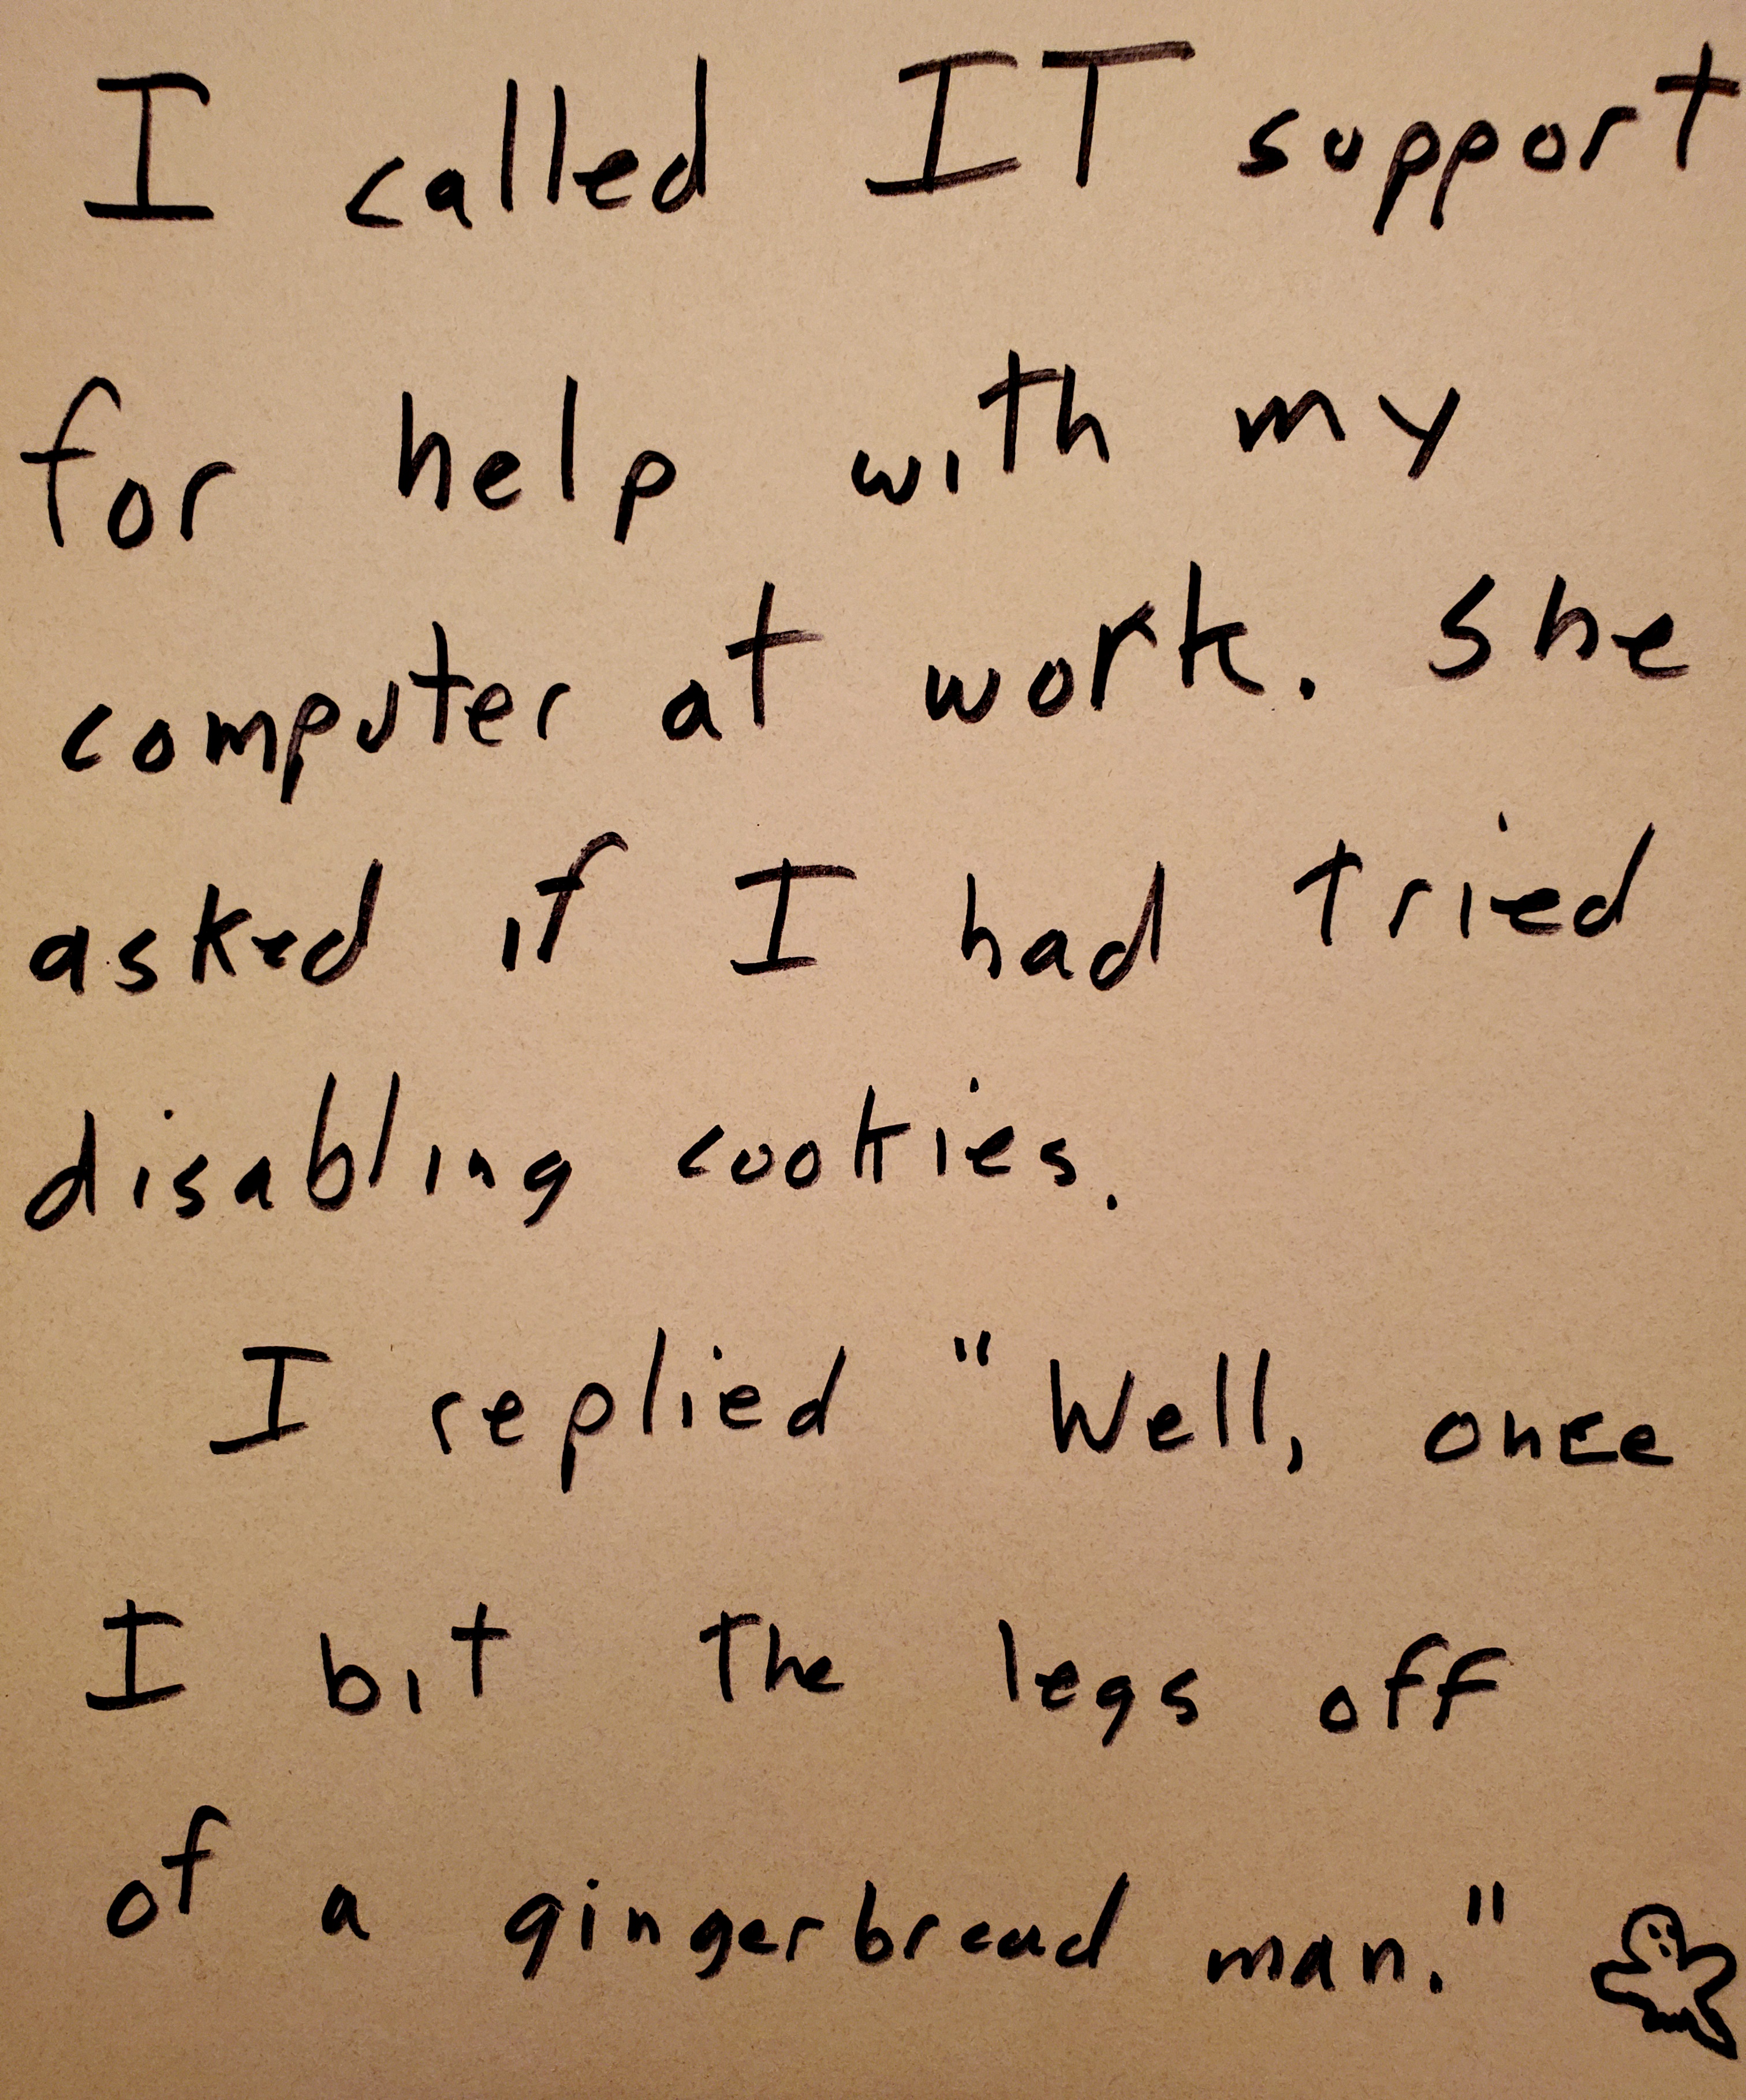 I called IT support
for help with my
computer at work. She
asked if I had tried
disabling cookies.
I replied "Well, once
I bit the legs off
of a gingerbread man."